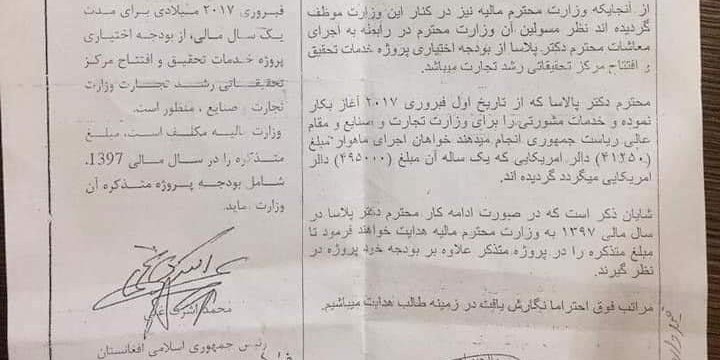 از آنجائیکه وزارت محترم مالیه نیز در کنار این وزارت موظف
گردیده اند نظر مسولین آن وزارت محترم در رابطه به اجرای
معاشات محترم دکتر پلاسا از بودجه اختیاری پروژه خدمات تحقیق
و افتتاح مرکز تحقیقاتی رشد تجارت میباشد.
محترم دکتر پالاسا که از تاریخ اول فبروری ۲۰۱۷ آغاز بکار
نموده و خدمات مشورتی را برای وزارت تجارت و صنایع و مقام
عالی ریاست جمهوری انجام میدهند خواهان اجرای ماهوار مبلغ
(۴۱۲۵۰) دالر امریکایی که یک ساله آن مبلغ (۴۹۵۰۰۰) دالر
امریکایی میگردد گردیده اند.
شایان ذکر است که در صورت ادامه کار محترم دکتر پلاسا در
سال مالی ۱۳۹۷ به وزارت محترم مالیه هدایت خواهند فرمود تا
مبلغ متذکره را در پروژه متذکر علاوه بر بودجه خود پروژه در
نظر گیرند.
مراتب فوق احتراما نگارش یافت در زمینه طالب هدایت میباشیم.
فبروری ۲۰۱۷ میلادی برای مدت
یک سال مالی، از بودجه اختیاری
پروژه خدمات تحقیق و افتتاح مرکز
تحقیقاتی رشد تجارت وزارت
تجارت و صنایع، منظور است.
وزارت مالیه مکلف است، مبلغ
متذکره را در سال مالی 1397،
شامل بودجه پروژه متذکره آن
وزارت نماید.
محمد اشرف غنی
رئیس جمهوری اسلامی افغانستان